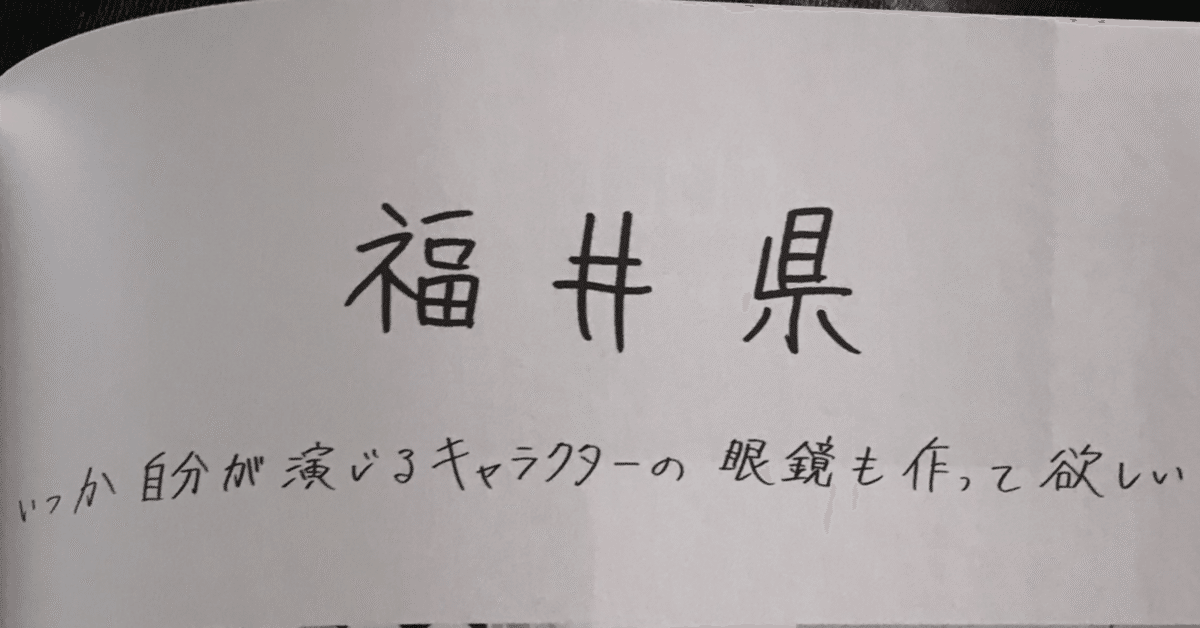 福井県
いつか自分が演じるキャラクターの眼鏡も作って欲しい